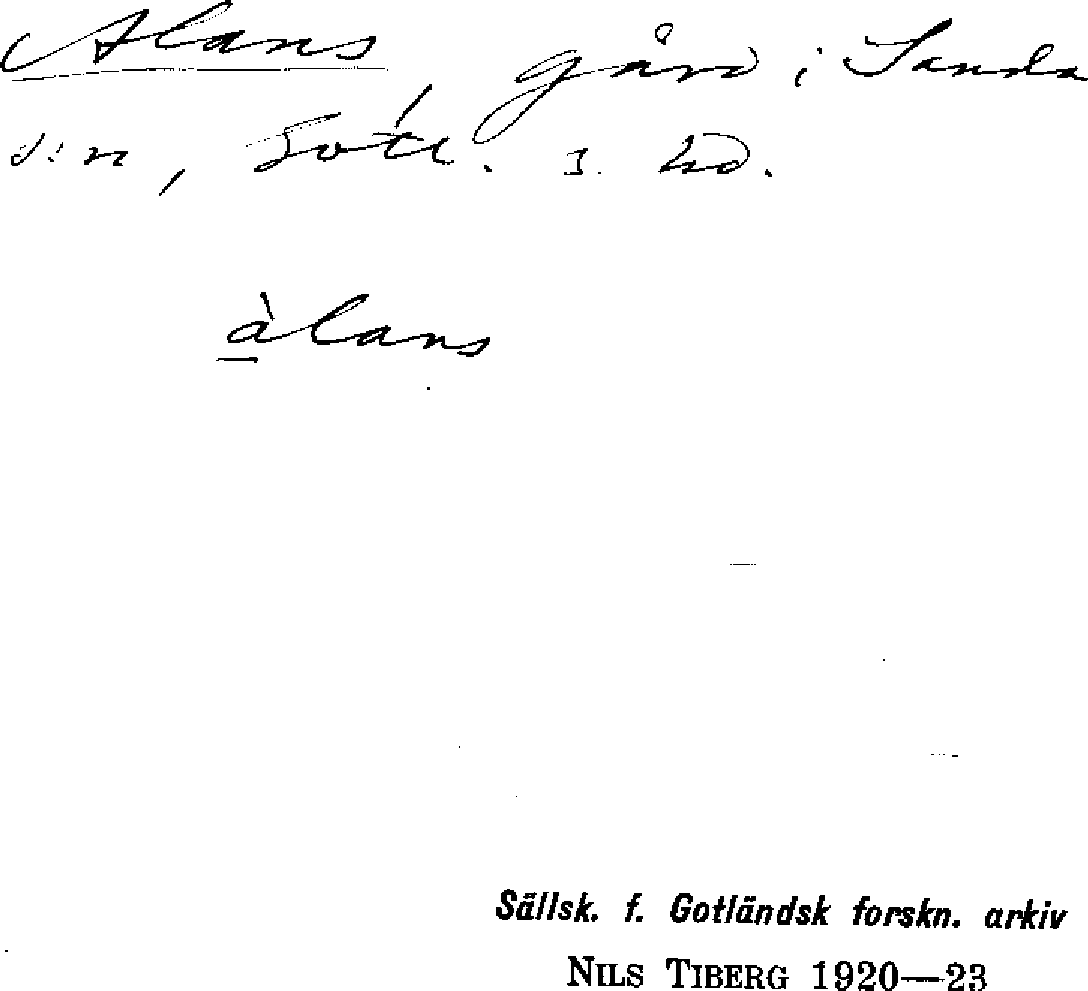 Alans, gård i Sanda
s:n, Gotl. s. hd.
àlans
Sällsk. f. Gotländsk forskn. arkiv
NILS TIBERG 1920—23